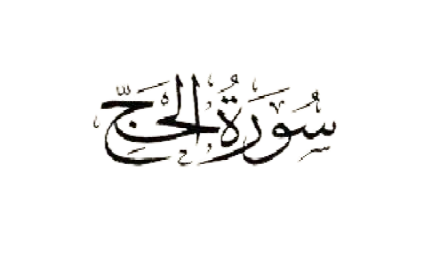 سُورَةُ الحَجّ